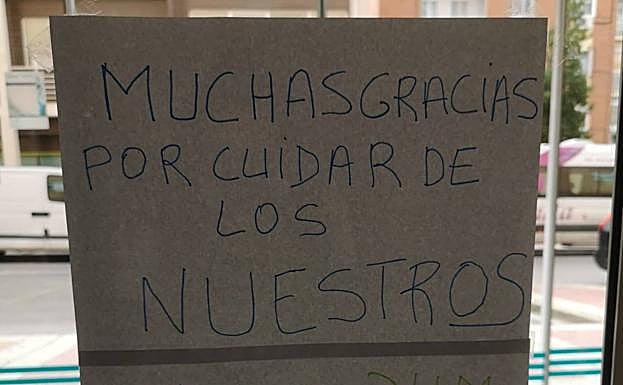 MUCHAS GRACIAS
POR CUIDAR DE
LOS
NUESTROS